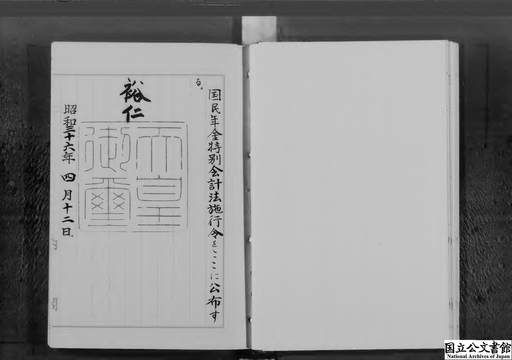 国民年金特別会計法施行令をここに公布す
る。
裕仁
天皇
御璽
昭和三十六年四月十二日
国立公文書館
National Archives of Japan